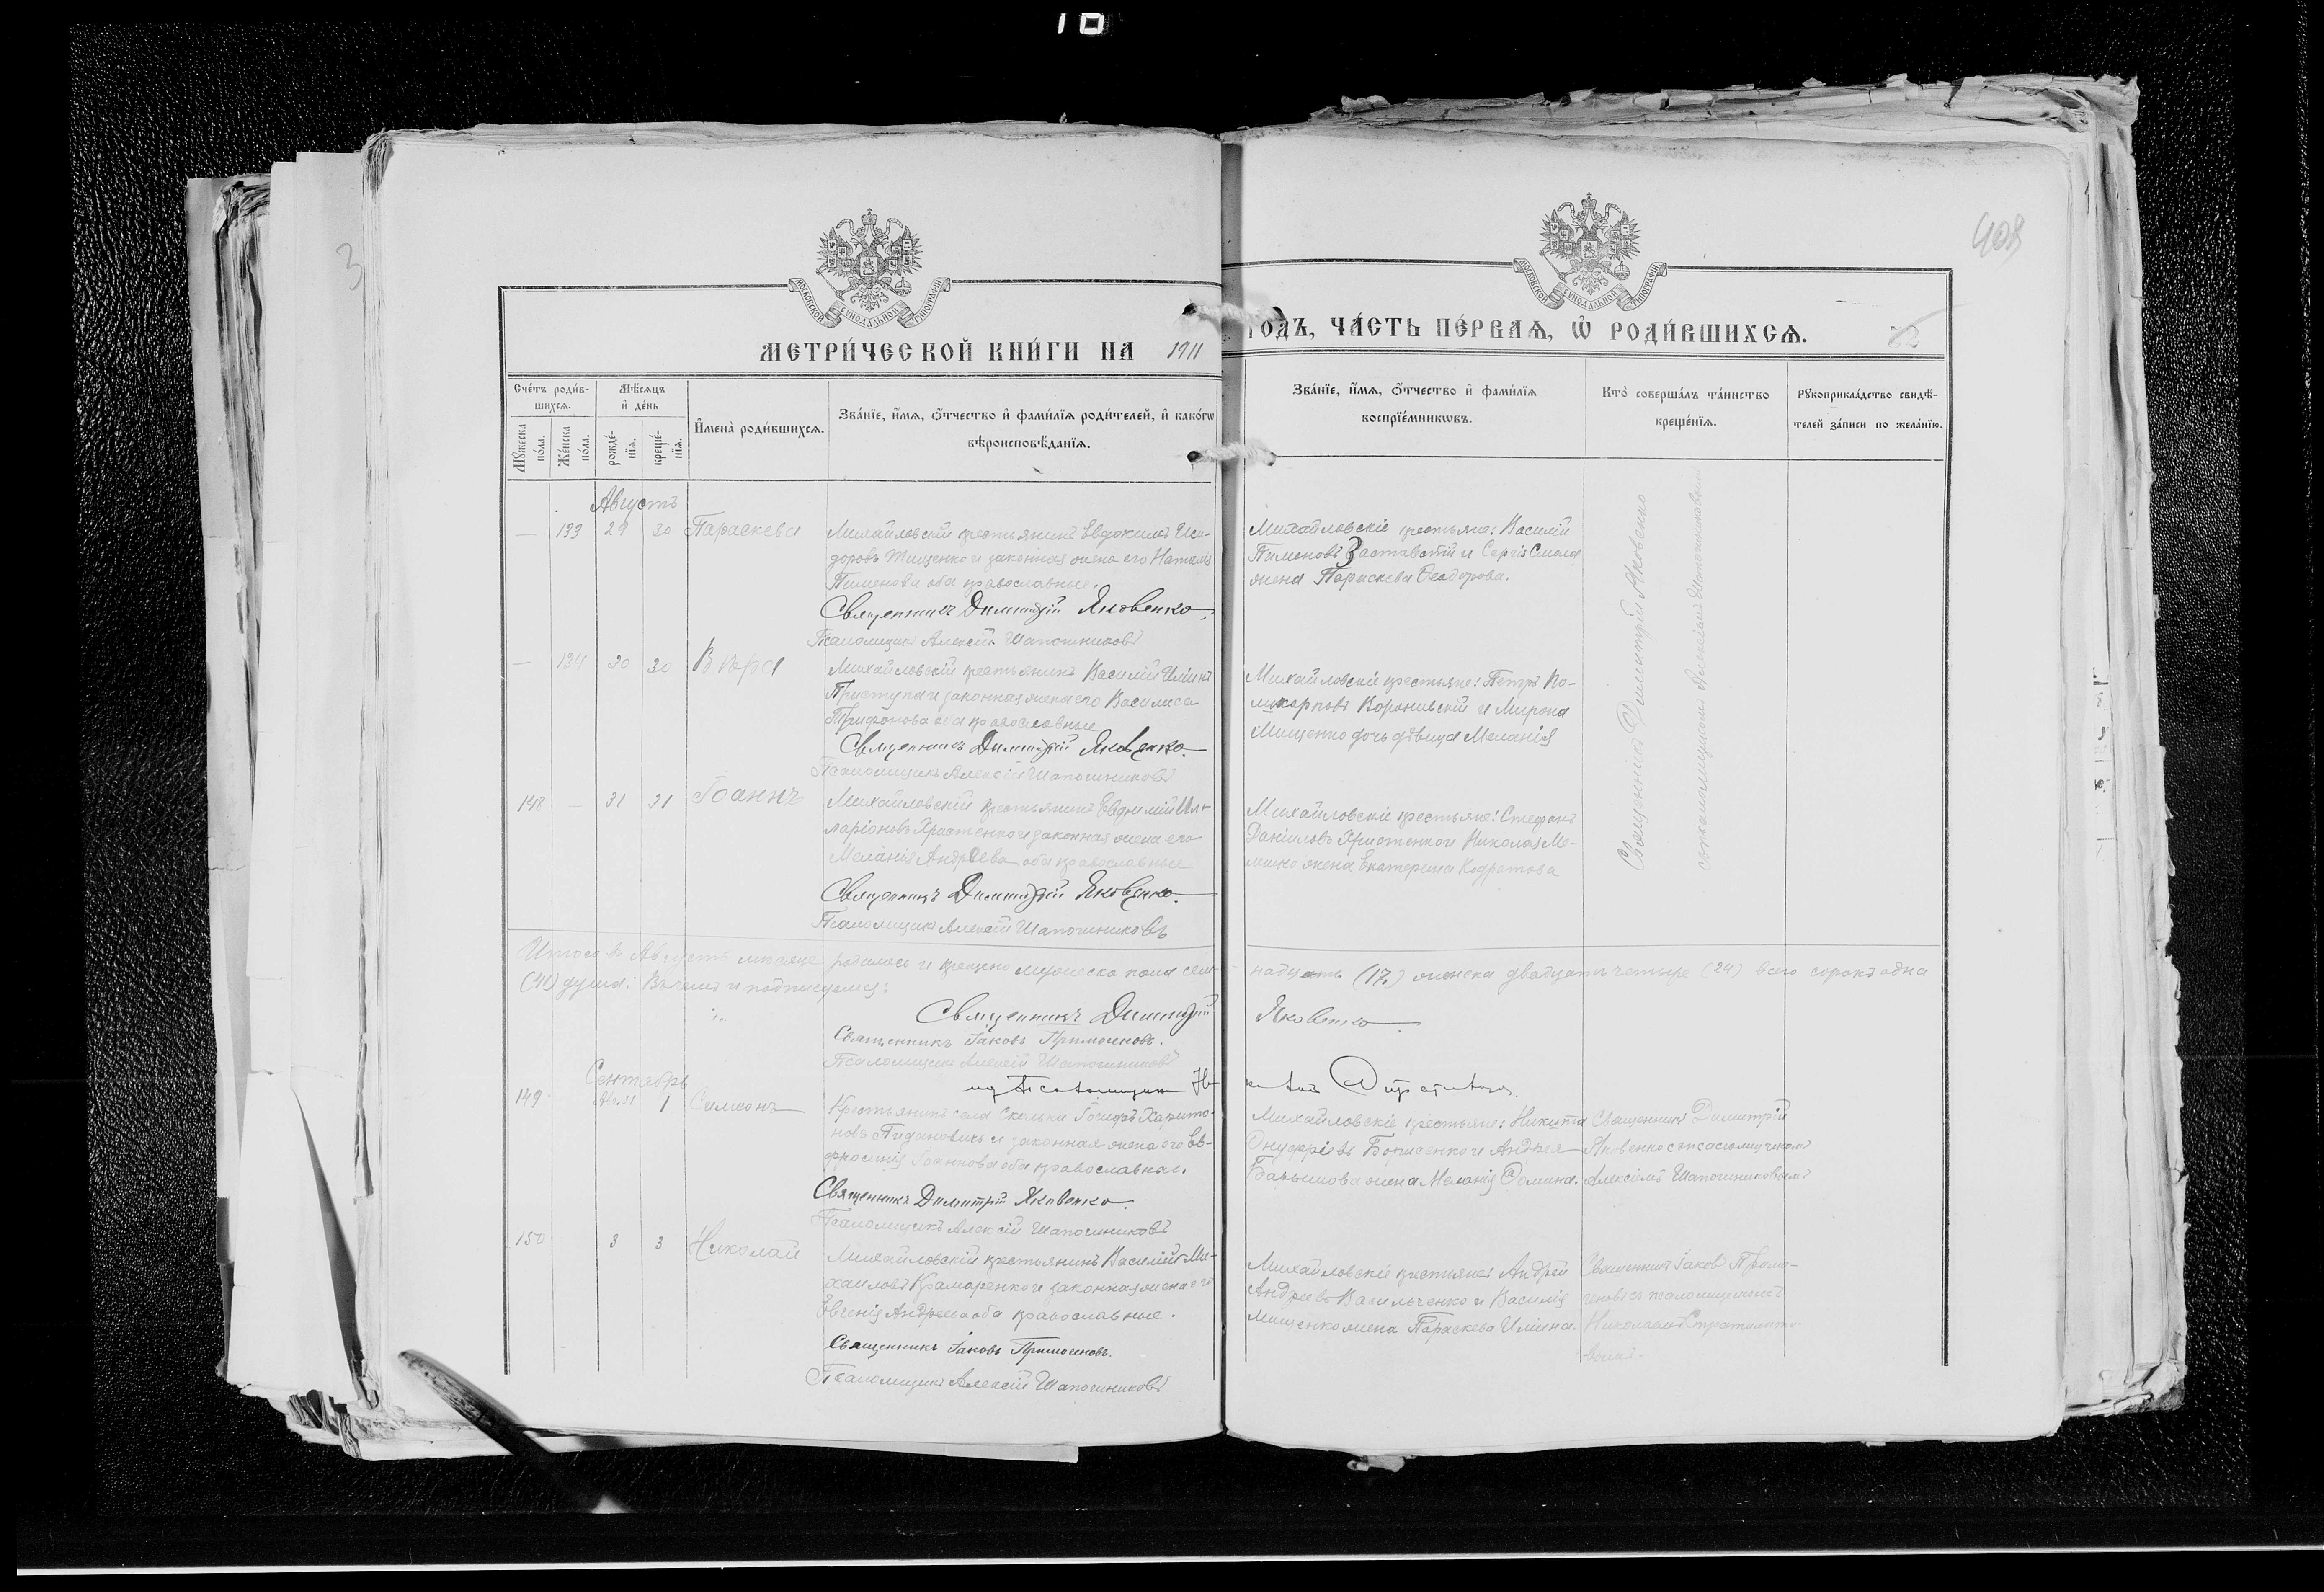 10
3
408
МОСКОВСКОЙ СУНОДАЛЬНОЙ ТИПОГРАФІИ
МОСКОВСКОЙ СУНОДАЛЬНОЙ ТИПОГРАФІИ
МЕТРИ́ЧЕСКОЙ КНИ́ГИ НА 1911
ГОДЪ, ЧА́СТЬ ПЕ́РВАЯ, Ѡ҆ РОДИ́ВШИХСЯ.
Сче́тъ роди́вшихся.
Мꙋжеска по́ла.
Же́нска по́ла.
Мѣ́сяцъ и҆ де́нь
рожде́нїѧ.
креще́нїѧ.
И҆мена̀ роди́вшихся.
Зва́нїе, и҆́мѧ, ѻ҆́тчество и҆ фами́лїѧ роди́телей, и҆ како́гѡ
вѣроисповѣ́данїѧ.
Зва́нїе, и҆́мѧ, ѻ҆́тчество и҆ фами́лїѧ
воспрїе́мникѡвъ.
Кто̀ соверша́лъ та́инство
креще́нїѧ.
Рꙋкоприкла́дство свидѣ́-
телей за́писи по жела́нїю.
Августъ
— 133 29 30 Параскева
Михайловскій крестьянинъ Евдокимъ Иси-
доровъ Тищенко и законная жена его Наталія
Пименова оба православные.
Священникъ Димитрій Яковенко.
Псаломщикъ Алексій Шапошниковъ
Михайловскіе крестьяне: Василій
Пименовъ Заставскій и Сергія
жена Параскева Ѳеодорова.
— 134 30 30 Вѣра
Михайловскій крестьянинъ Василій Иліинъ
Приступа и законная жена его Василиса
Трифонова оба православные
Священникъ Димитрій Яковенко.
Псаломщикъ Алексій Шапошниковъ
Михайловскіе крестьяне: Петръ По-
ликарповъ и Мирона
Мищенко дочь дѣвица Меланія
148 — 31 31 Іоаннъ
Михайловскій крестьянинъ Евфимій Ил-
ларіоновъ Христенко и законная жена его
Меланія Андреева оба православные
Священникъ Димитрій Яковенко.
Псаломщикъ Алексій Шапошниковъ
Михайловскіе крестьяне: Стефанъ
Даніиловъ Христенко и Николая Ме-
жена Екатерина Кодратова
Священникъ Димитрій Яковенко
съ псаломщикомъ Алексіемъ Шапошниковымъ
Итого въ Августѣ мѣсяцѣ родилось и крещено мужеска пола сем-
надцать (17) женска двадцать четыре (24) всего сорокъ одна
(41) душа: Въ чемъ и подписуемся:
Священникъ Димитрій Яковенко
Священникъ Іаковъ Примоченовъ.
Псаломщикъ Алексій Шапошниковъ
Псаломщикъ
Сентябрь
149 Авг. 31 1 Симеонъ
Крестьянинъ села Скельки Іосифъ Харито-
новъ и законная жена его Ев-
фросинія Іоаннова оба православные.
Священникъ Димитрій Яковенко.
Псаломщикъ Алексій Шапошниковъ
Михайловскіе крестьяне: Никита
Онуфріевъ Борисенко и Андрея
жена Меланія
Священникъ Димитрій
Яковенко съ псаломщикомъ
Алексіемъ Шапошниковымъ
150 3 3 Николай
Михайловскій крестьянинъ Василій Ми-
хаиловъ Крамаренко и законная жена его
Евгенія Андреева оба православные.
Священникъ Іаковъ Примоченовъ.
Псаломщикъ Алексій Шапошниковъ
Михайловскіе крестьяне Андрей
Андреевъ Васильченко и Василія
Мищенко жена Параскева Иліина.
Священникъ Іаковъ Примо-
ченовъ съ псаломщикомъ
Николаемъ